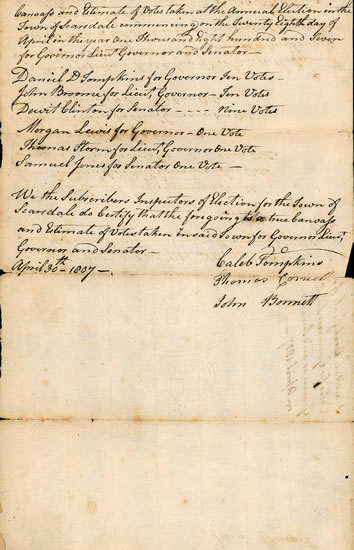 Canvass and Estimate of Votes taken at the Annual Election in the
Town of Scarsdale commencing on the Twenty Eighth day of
April in the year One Thousand Eight hundred and Seven
for Governor Lieut Governor and Senator —
Daniel D Tompkins for Governor Ten Votes -
John Broome for Lieut, Governor - Ten Votes
Dewit Clinton for Senator - - - - Nine Votes
Morgan Lewis for Governor - One Vote
Thomas Storm for Lieut, Governor One Vote
Samuel Jones for Senator One Vote —
We the Subscribers Inspectors of Election for the Town of
Scarsdale do Certify that the foregoing is a true Canvass
and Estimate of Votes taken in said Town for Governor Lieut,
Governor and Senator —
April 30th - 1807 —
Caleb Tompkins
Thomas Cornel
John Bennett